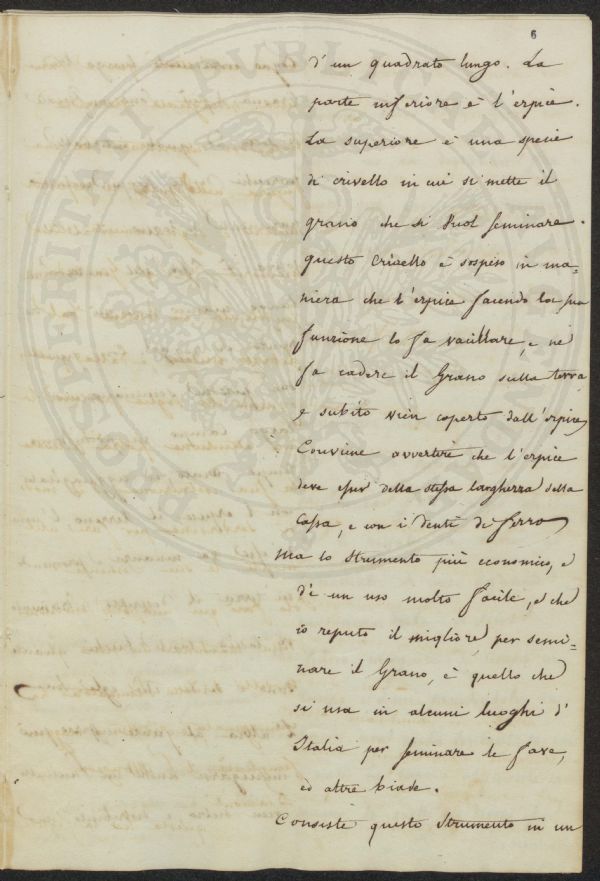 6
d'un quadrato lungo. La
parte inferiore è l'erpice.
La superiore è una specie
di crivello in cui si mette il
grano che si vuol seminare.
questo crivello è sospeso in ma=
niera che l'erpice facendo la sua
funzione lo fa vacillare, e ne
fa cadere il Grano sulla terra
e subito vien coperto dall'erpice
Conviene avvertire che l'erpice
deve esser della stessa larghezza della
Cassa, e con i denti di ferro
Ma lo strumento più economico, e
d'è un uso molto facile, e che
io reputo il migliore per semi=
nare il Grano, è quello che
si usa in alcuni luoghi d'
Italia per seminare le fave,
ed altre biade.
Consiste questo strumento in un
PROSPERITATI PUBLICAE AUGENDAE